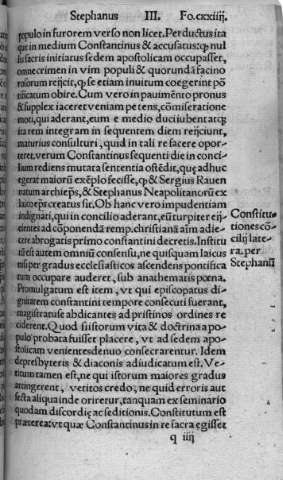 Stephanus III. Fo.cxxiiij.
populo in furorem verso non licet. Perductus ita
que in medium Constantinus & accusatus: ꝙ nul
lis sacris initiatus sedem apostolicam occupasset,
omne crimen in vim populi & quorundã facino
rosorum reijcit, ꝙ se etiam inuitum coegerint põ
tificatum obire. Cum vero in pauimẽto pronus
& supplex iaceret veniam petens, cõmiseratione
moti, qui aderant, eum e medio duci iubent atcꝙ
ita rem integram in sequentem diem reijciunt,
maturius consulturi, quid in tali re facere opor⸗
teret. verum Constantinus sequenti die in conci⸗
lium rediens mutata sententia ostẽdit, que adhuc
egerat maiorũ exẽplo fecisse, ꝙ & Sergius Rauen
natum archieps, & Stephanus Neapolitanorũ ex
laico eps creatus sit. Ob hanc vero impudentiam
indignati, qui in concilio aderant, eũ turpiter eij⸗
cientes ad cõponendã remp. christianã aĩm adie⸗
cere abrogatis primo constantini decretis. Institu
tũ est autem omniũ consensu, ne quisquam laicus
nisi per gradus ecclesiasticos ascendens pontifica
tum occupare auderet, sub anathematis pœna.
Promulgatum est item, vt qui episcopatus di⸗
gnitatem constantini tempore consecuti fuerant,
magistratu se abdicantes ad pristinos ordines re
ciderent. Quod si istorum vita & doctrina a po⸗
pulo probata fuisset placere, vt ad sedem apo⸗
stolicam venientes denuo consecrarentur. Idem
de presbyteris & diaconis adiudicatum est. Ve⸗
titum tamen est, ne qui istorum maiores gradus
attingerent, veritos credo, ne quid erroris aut
secta aliqua inde oriretur, tanquam ex seminario
quodam discordię ac seditionis. Constitutum est
præterea: vt quæ Constantinus in re sacra egisset
q iiij
Constitu⸗
tiones cõ⸗
cilij late⸗
rañ. per
Stephanũ